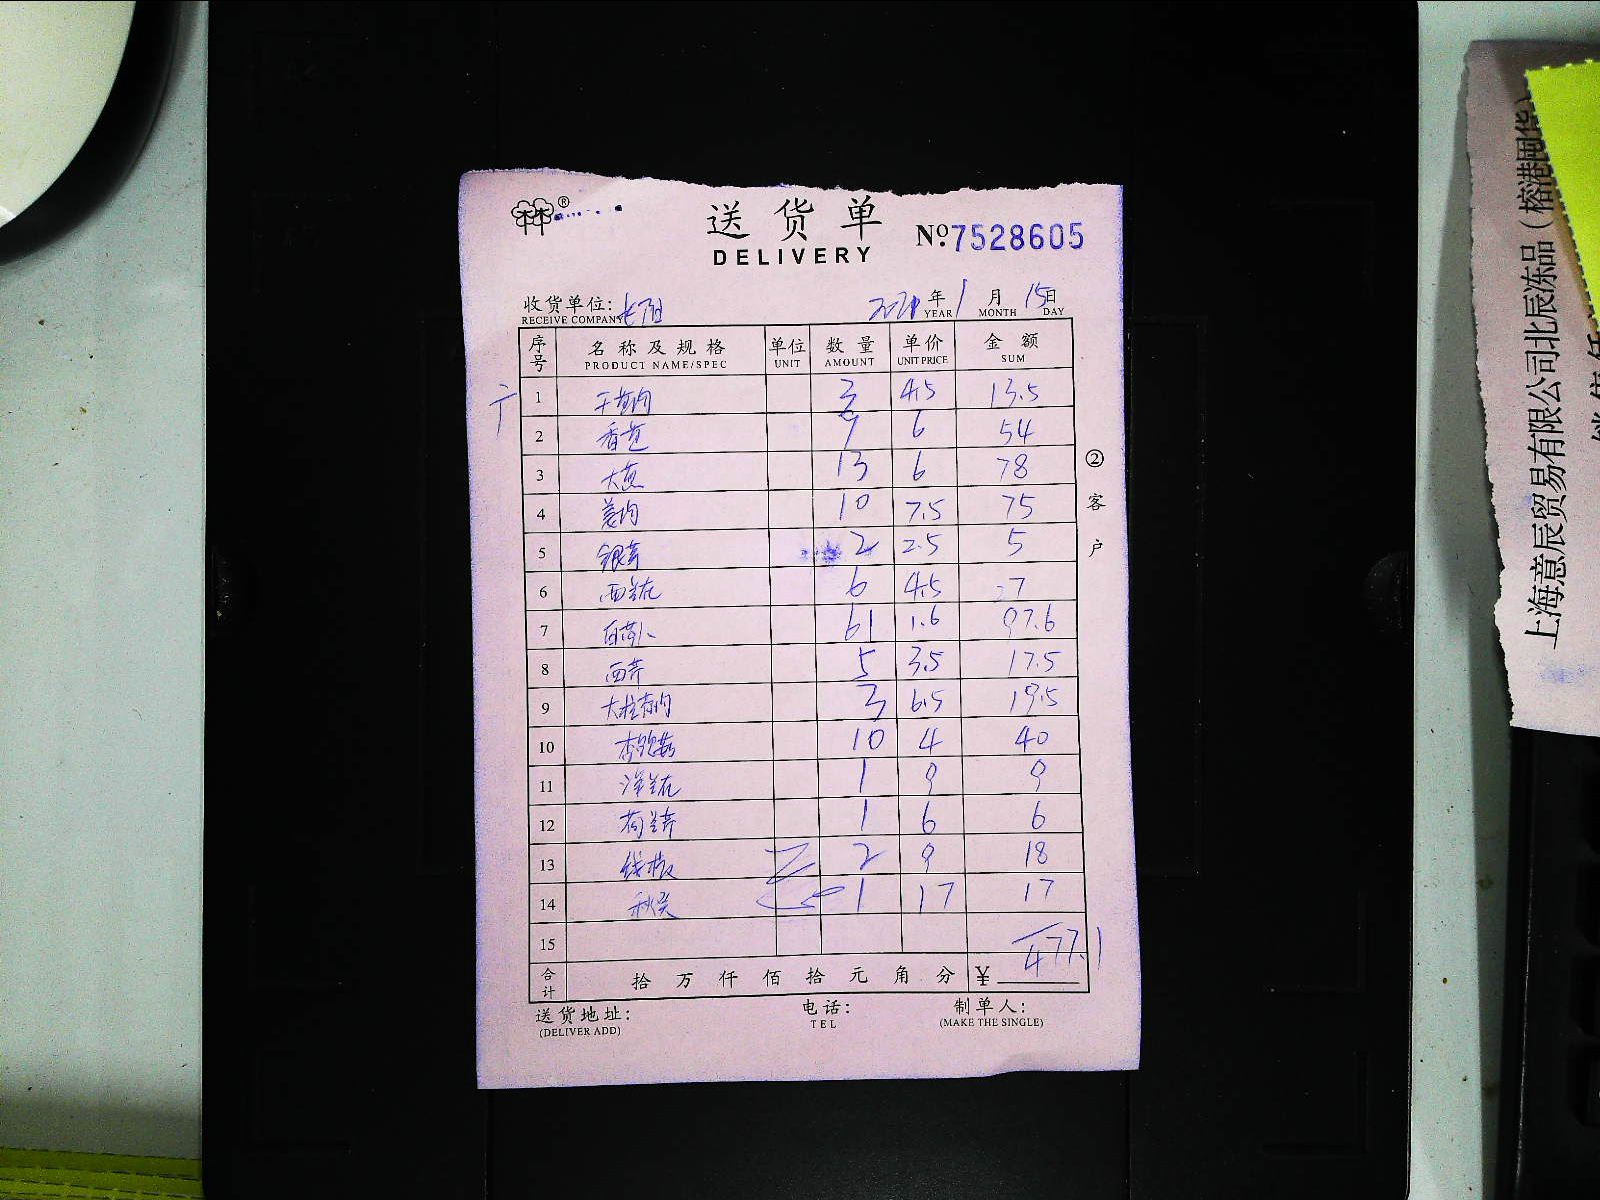 林®
送货单
DELIVERY
№ 7528605
收货单位: 2021年1月15日
RECEIVE COMPANY YEAR MONTH DAY
序号 名称及规格 单位 数量 单价 金额
PRODUCT NAME/SPEC UNIT AMOUNT UNIT PRICE SUM
1 3 4.5 13.5
2 香芒 9 6 54
3 大 13 6 78
4 10 7.5 75
5 银芽 2 2.5 5
6 西兰花 6 4.5 27
7 白萝卜 61 1.6 97.6
8 西芹 5 3.5 17.5
9 3 6.5 19.5
10 杏鲍菇 10 4 40
11 洋兰花 1 9 9
12 荷兰芹 1 6 6
13 2 9 18
14 秋葵 1 17 17
15
477.1
合计 拾万仟佰拾元角分 ¥
送货地址: 电话: 制单人:
(DELIVER ADD) TEL (MAKE THE SINGLE)
②客户
上海薏辰贸易有限公司北辰冻品